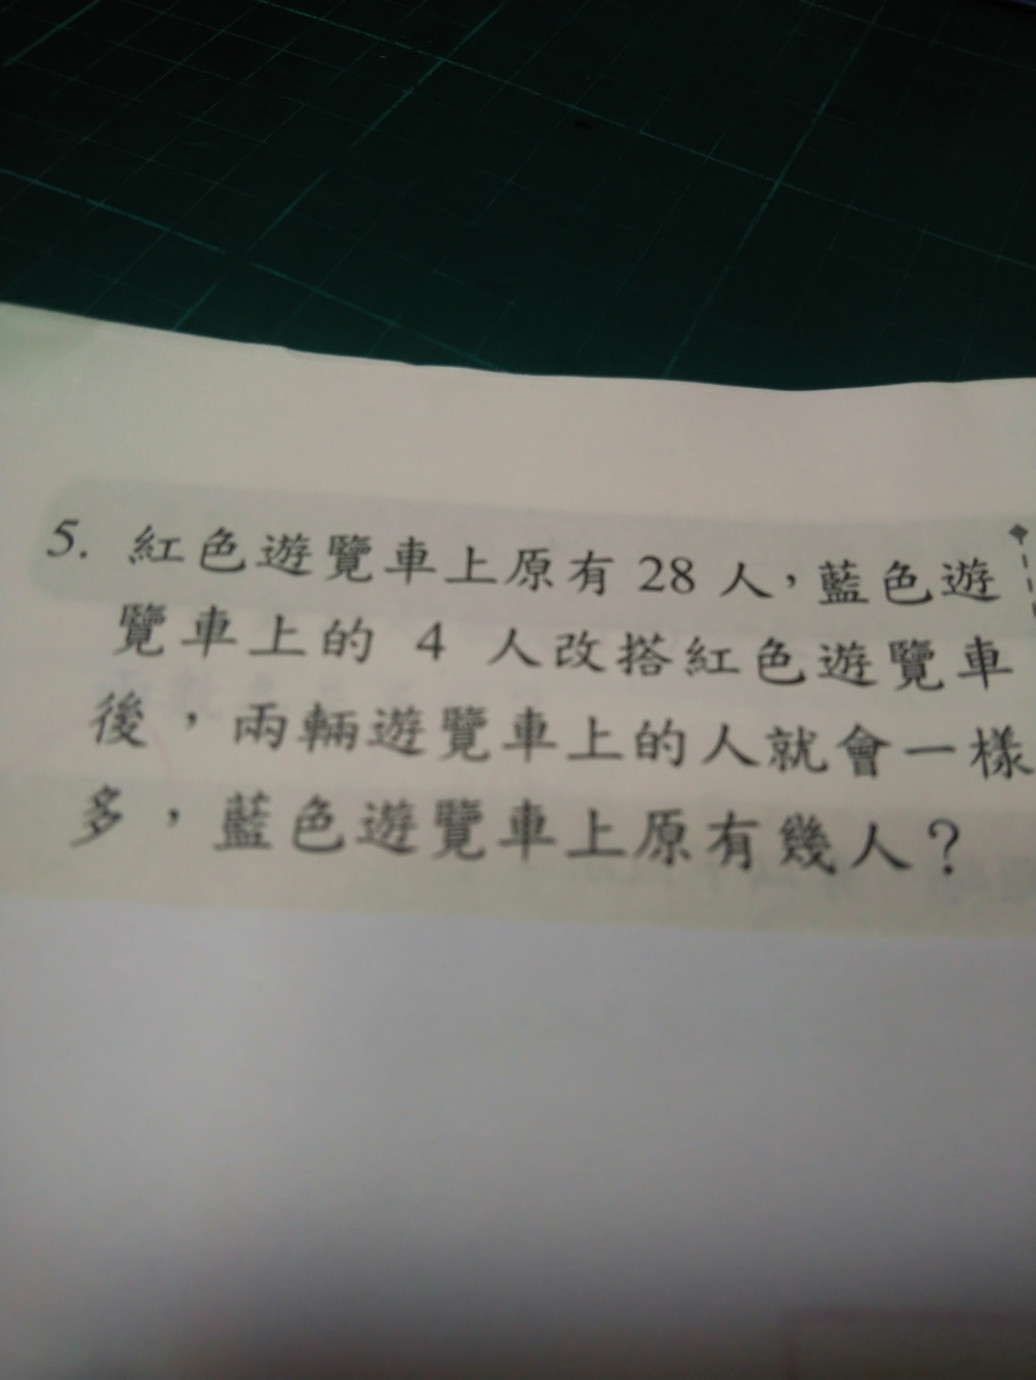 5. 紅色遊覽車上原有 28 人，藍色遊
覽車上的 4 人改搭紅色遊覽車
後，兩輛遊覽車上的人就會一樣
多，藍色遊覽車上原有幾人？